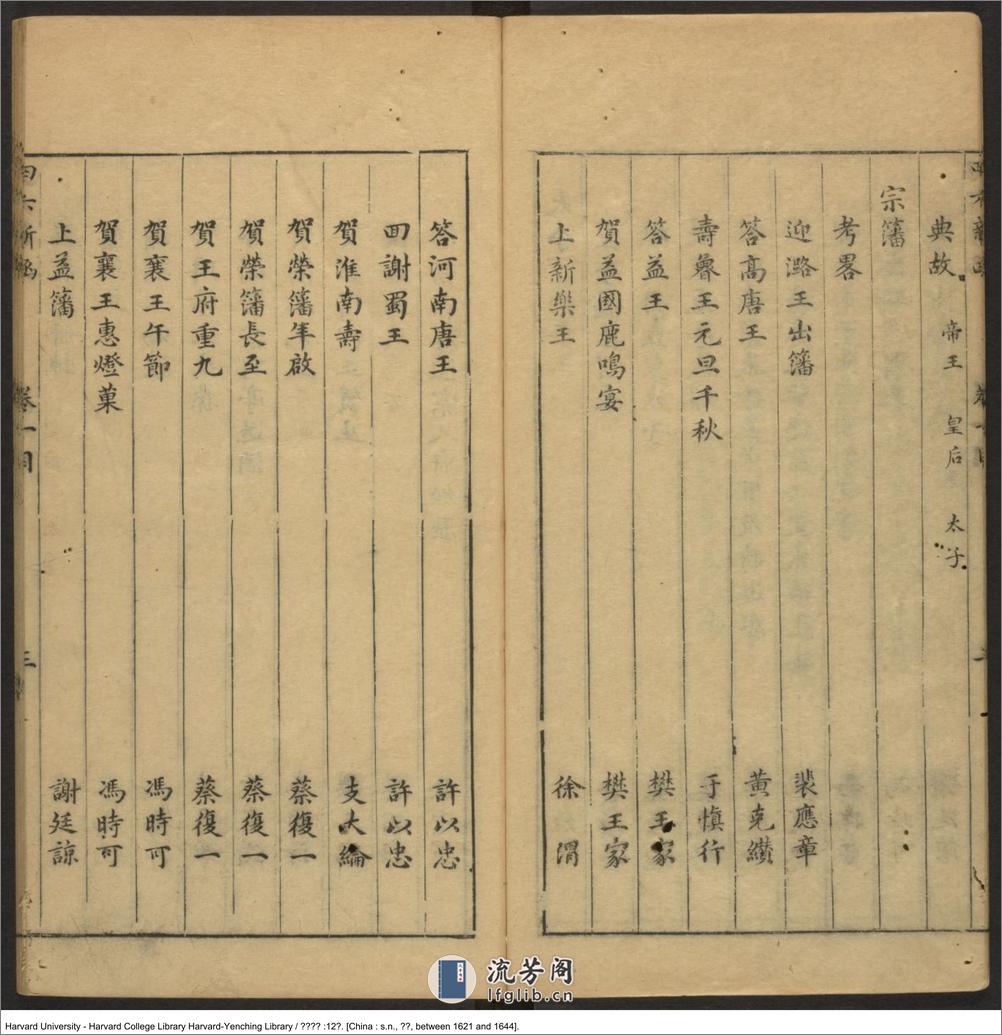 典故　帝王　皇后　太子
宗藩
考畧
迎潞王出藩　裴應章
答高唐王　黄克纘
壽魯王元旦千秋　于慎行
答益王　樊王家
賀益國鹿鳴宴　樊王家
上新樂王　徐渭
答河南唐王　許以忠
囬謝蜀王　許以忠
賀淮南壽　支大綸
賀榮藩年啟　蔡復一
賀榮藩長至　蔡復一
賀王府重九　蔡復一
賀襄王午節　馮時可
賀襄王惠燈菓　馮時可
上益藩　謝廷諒
四六新函　卷一目　三
流芳阁
lfglib.cn
Harvard University - Harvard College Library Harvard-Yenching Library / ???? :12?. [China : s.n., ??, between 1621 and 1644].